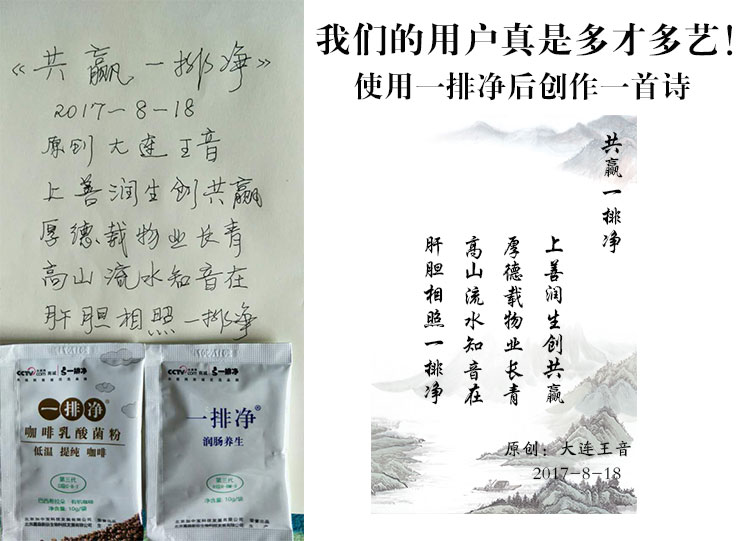 《共赢一排净》
2017-8-18
原创 大连王音
上善润生创共赢
厚德载物业长青
高山流水知音在
肝胆相照一排净
CCTV
一排净
一排净®
咖啡乳酸菌粉
低温 提纯 咖啡
第三代
净含量: 10g/袋
CCTV
一排净
一排净®
润肠养生
第三代
净含量: 10g/袋
我们的用户真是多才多艺!
使用一排净后创作一首诗
共赢一排净
上善润生创共赢
厚德载物业长青
高山流水知音在
肝胆相照一排净
原创:大连王音
2017-8-18